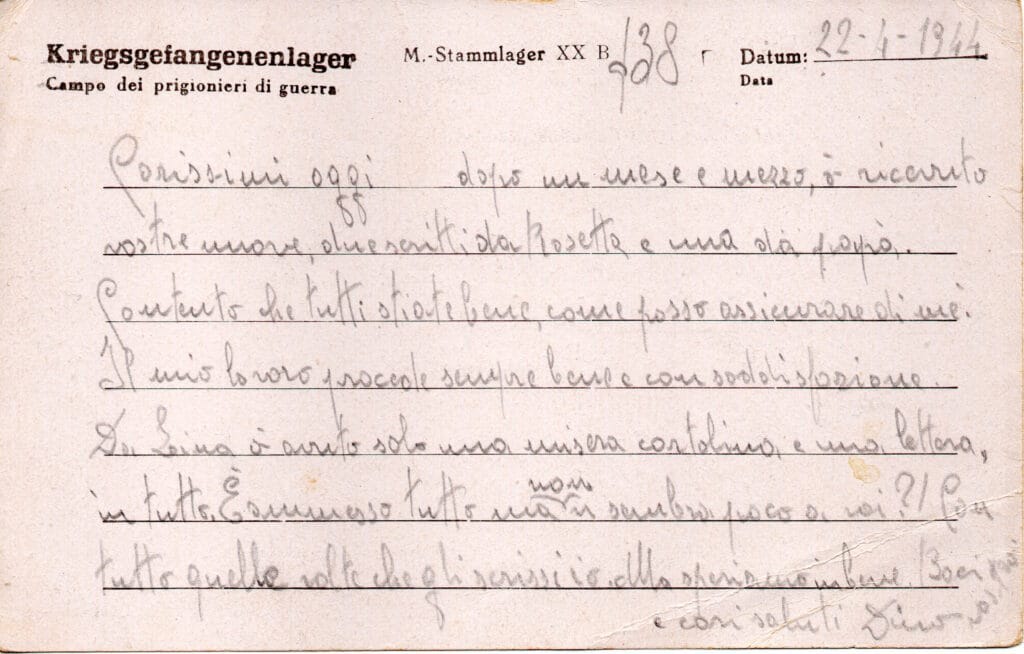 Kriegsgefangenenlager M.-Stammlager XX B 738 Datum: 22-4-1944
Campo dei prigionieri di guerra Data
Carissimi oggi dopo un mese e mezzo, ò ricevuto
vostre nuove, due scritti da Rosetta e una da papà.
Contento che tutti stiate bene, come posso assicurare di me.
Il mio lavoro procede sempre bene e con soddisfazione.
Da Lina ò avuto solo una misera cartolina e una lettera,
in tutto. È ammesso tutto ma non vi sembra poco a voi?! Con
tutto quelle volte che gli scrissi io. Ma speriamo in bene. Baci
e cari saluti Dino